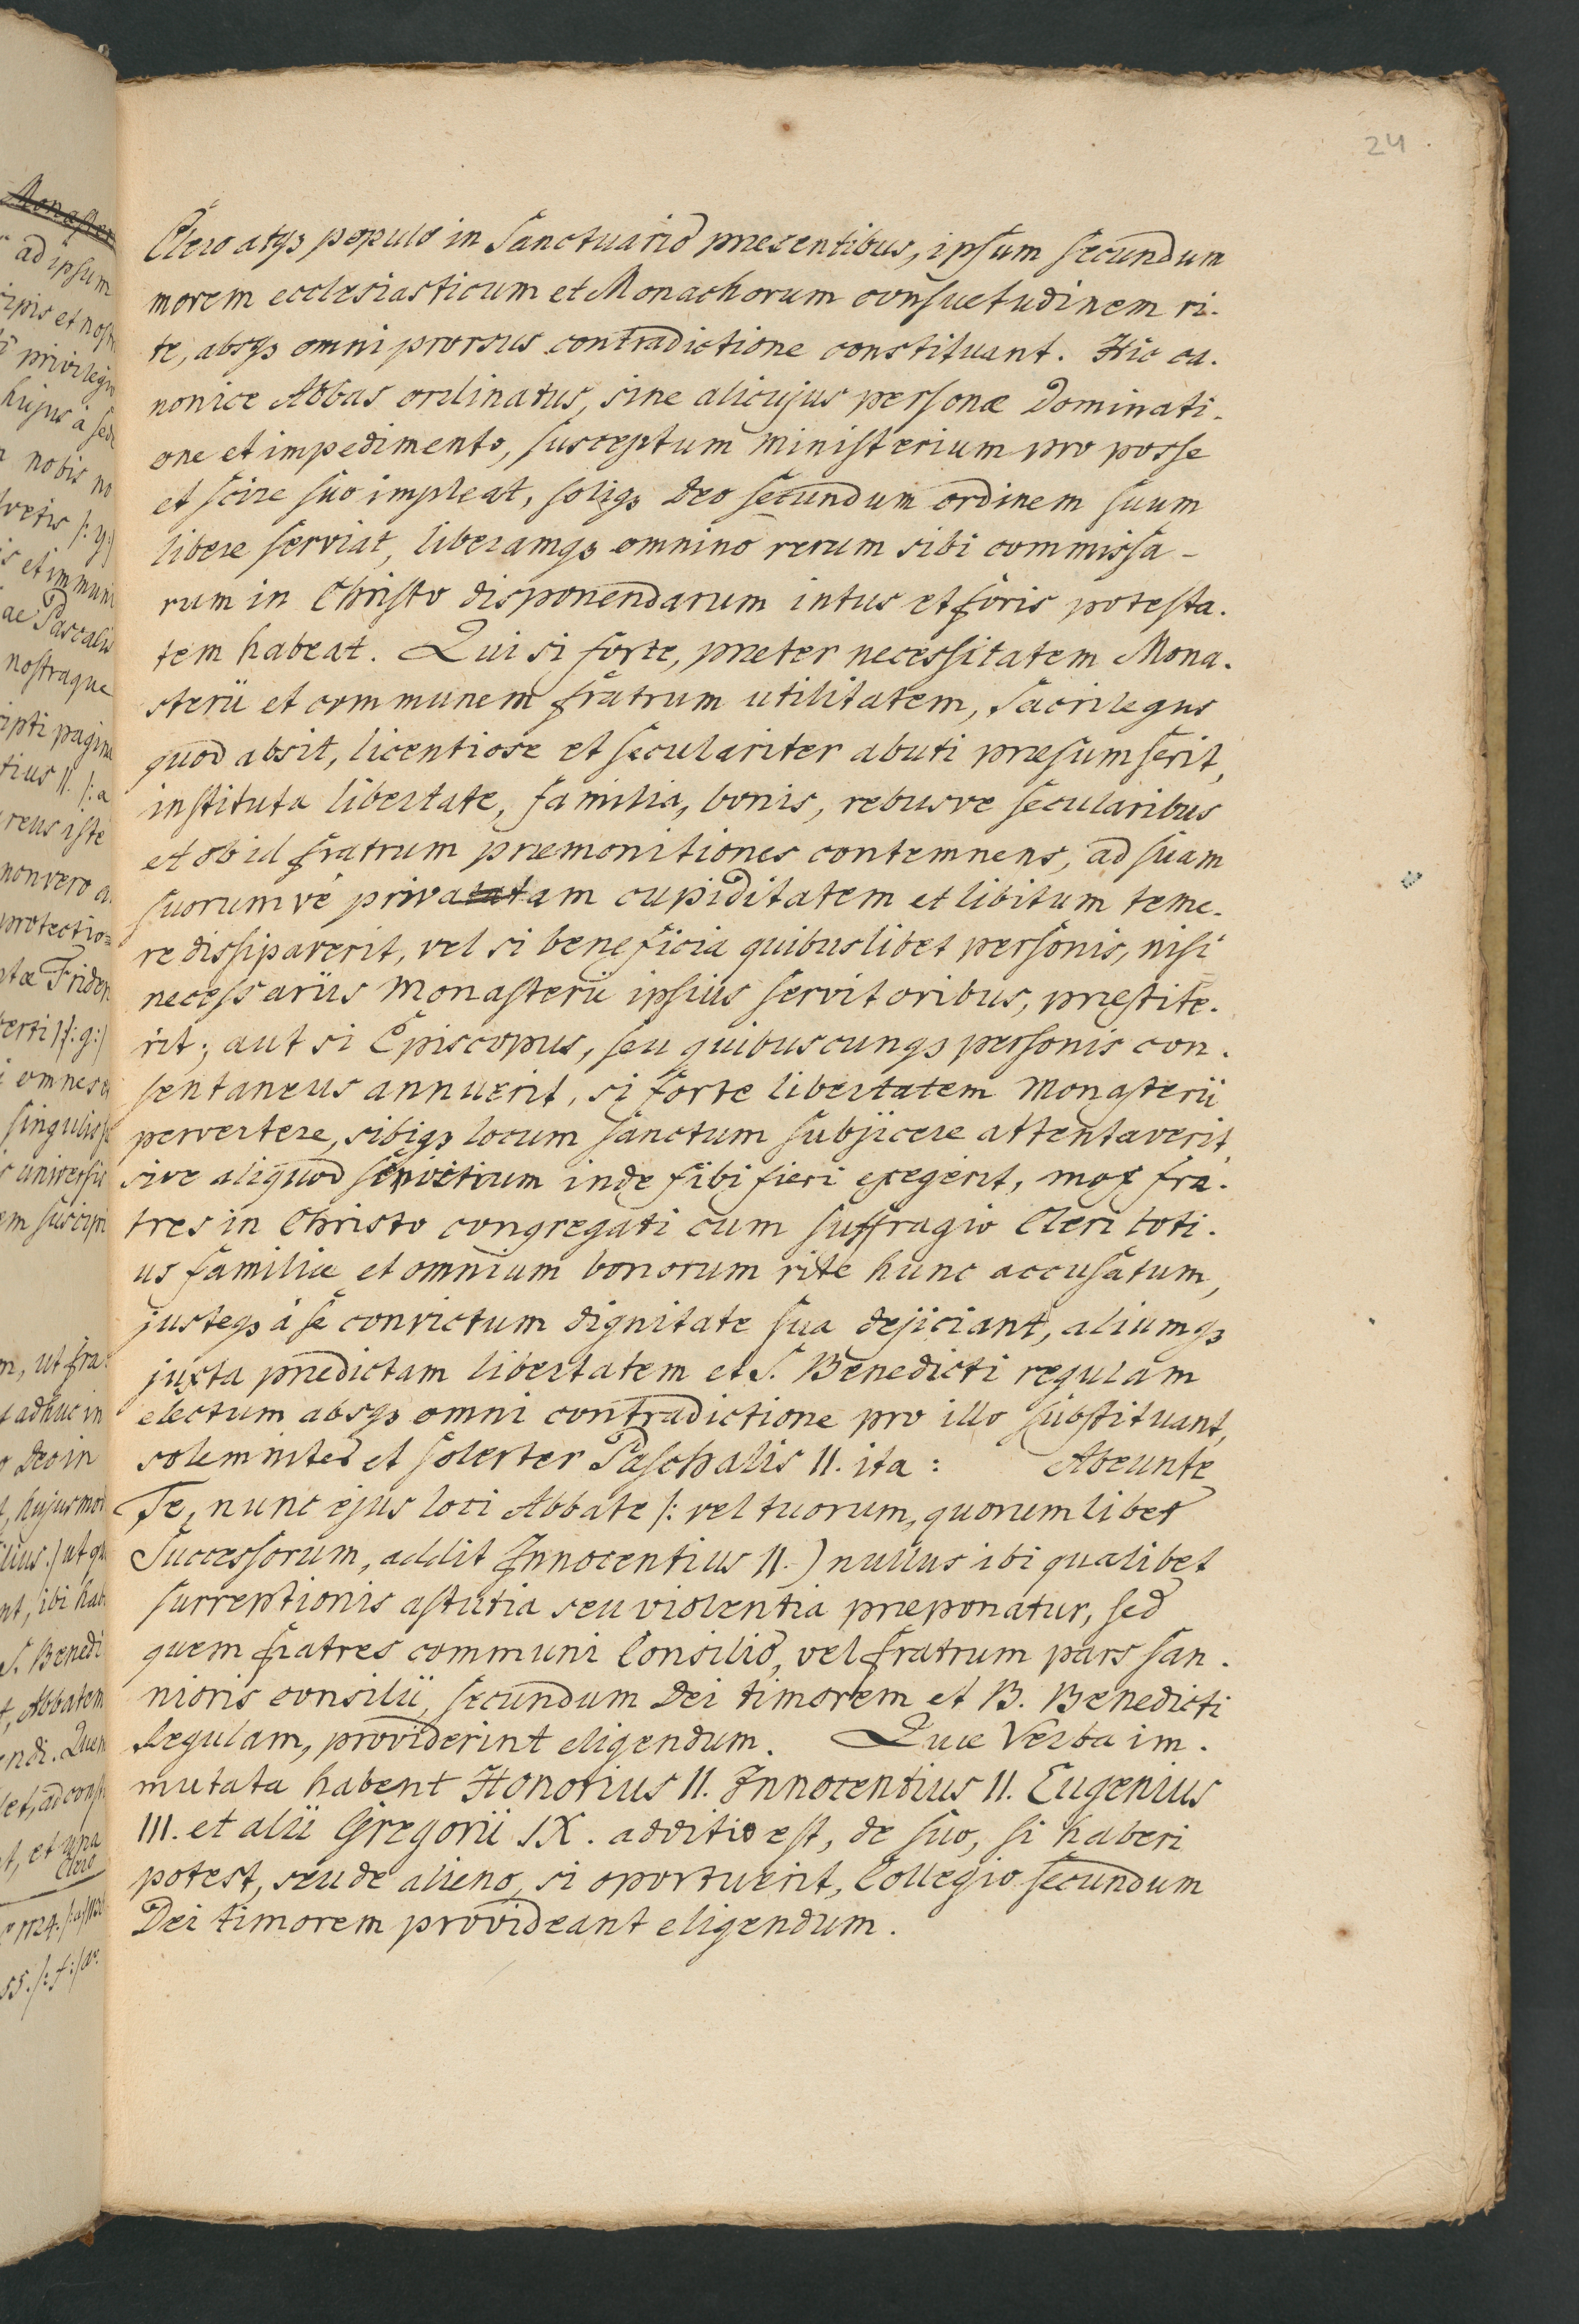 24.
Clero atqꝫ populo in Sanctuario præsentibus, ipsum secundum
morem ecclesiasticum et Monachorum consuetudinem ri-
te, absqꝫ omni prorsus contradictione constituant. Hic ca-
nonice Abbas ordinatus, sine alicujus personæ dominati-
one et impedimento, susceptum ministerium pro posse
et scire suo impleat, soliqꝫ Deo secundum ordinem suum
libere serviat, liberamqꝫ omnino rerum sibi commissa-
rum in Christo disponendarum intus et foris potesta-
tem habeat. Qui si forte, præter necessitatem Mona-
sterii et communem fratrum utilitatem, Sacrilegus
quod absit, licentiose et seculariter abuti præsumserit,
instituta libertate, familia, bonis, rebusve secularibus
et ob id fratrum præmonitiones contemnens, ad suam
suorumvé privatam cupiditatem et libitum teme-
re dissipaverit, vel si beneficia quibuslibet personis, nisi
necessariis Monasterii ipsius servitoribus, præstite-
rit; aut si Episcopus, seu quibuscunqꝫ personis con-
sentaneus annuerit, si forte libertatem Monasterii
pervertere, sibiqꝫ locum sanctum subjicere attentaverit,
sive aliquod servitium inde sibi fieri exegerit, mox fra-
tres in Christo congregati cum suffragio Cleri toti-
us familiæ et omnium bonorum rite hunc accusatum,
justeqꝫ á se convictum dignitate sua dejiciant, aliumqꝫ
juxta prædictam libertatem et S. Benedicti regulam
electum absqꝫ omni contradictione pro illo substituant,
solemniter et solerter Paschalis II. ita: Abeunte
Te, nunc ejus loci Abbate /: vel tuorum, quorumlibet
Successorum, addit Innocentius II.) nullus ibi qualibet
surreptionis astutia seu violentia præponatur, sed
quem fratres communi Consilio, vel fratrum pars san-
nioris consilii, secundum Dei timorem et B. Benedicti
Regulam, providerint eligendum. Quæ Verba im-
mutata habent Honorius II. Innocentius II. Eugenius
III. et alii Gregorii IX. additio est, de suo, si haberi
potest, seu de alieno, si oportuerit, Collegio secundum
Dei timorem provideant eligendum.